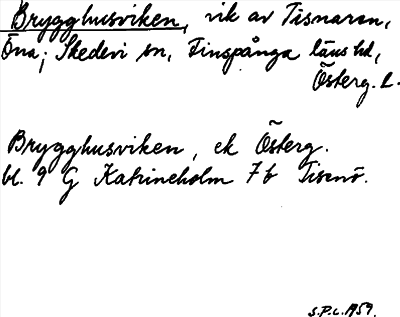 Brygghusviken, vik av Tisnaren,
Öna; Skedevi sn, Finspånga läns hd,
Österg. L.
Brygghusviken, ek Österg.
bl. 9 G Katrineholm 7b Tisenö.
S.P.L. 1959.